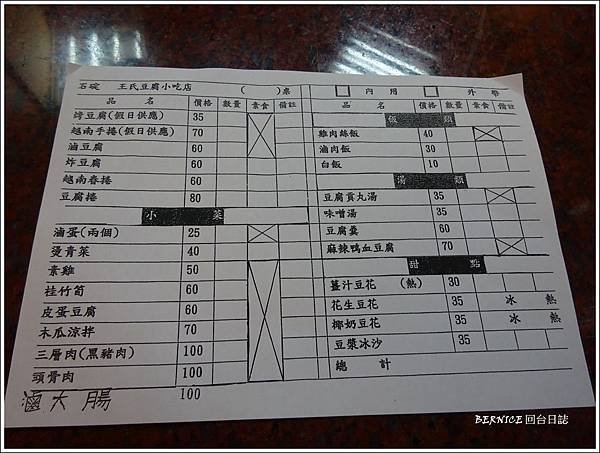 石碇 王氏豆腐小吃店 ( )桌
品 名 價格 數量 素食 備註
烤豆腐(假日供應) 35
越南手捲(假日供應) 70
滷豆腐 60
炸豆腐 60
越南春捲 60
豆腐捲 80
小 菜
滷蛋(兩個) 25
燙青菜 40
素雞 50
桂竹筍 60
皮蛋豆腐 60
木瓜涼拌 70
三層肉(黑豬肉) 100
頭骨肉 100
滷大腸 100
內 用 外 帶
品 名 價格 數量 素食 備註
飯 類
雞肉絲飯 40
滷肉飯 30
白飯 10
湯 類
豆腐貢丸湯 35
味噌湯 35
豆腐羹 60
麻辣鴨血豆腐 70
甜 點
薑汁豆花 (熱) 30
花生豆花 35 冰 熱
椰奶豆花 35 冰 熱
豆漿冰沙 35
總 計
BERNICE 回台日誌